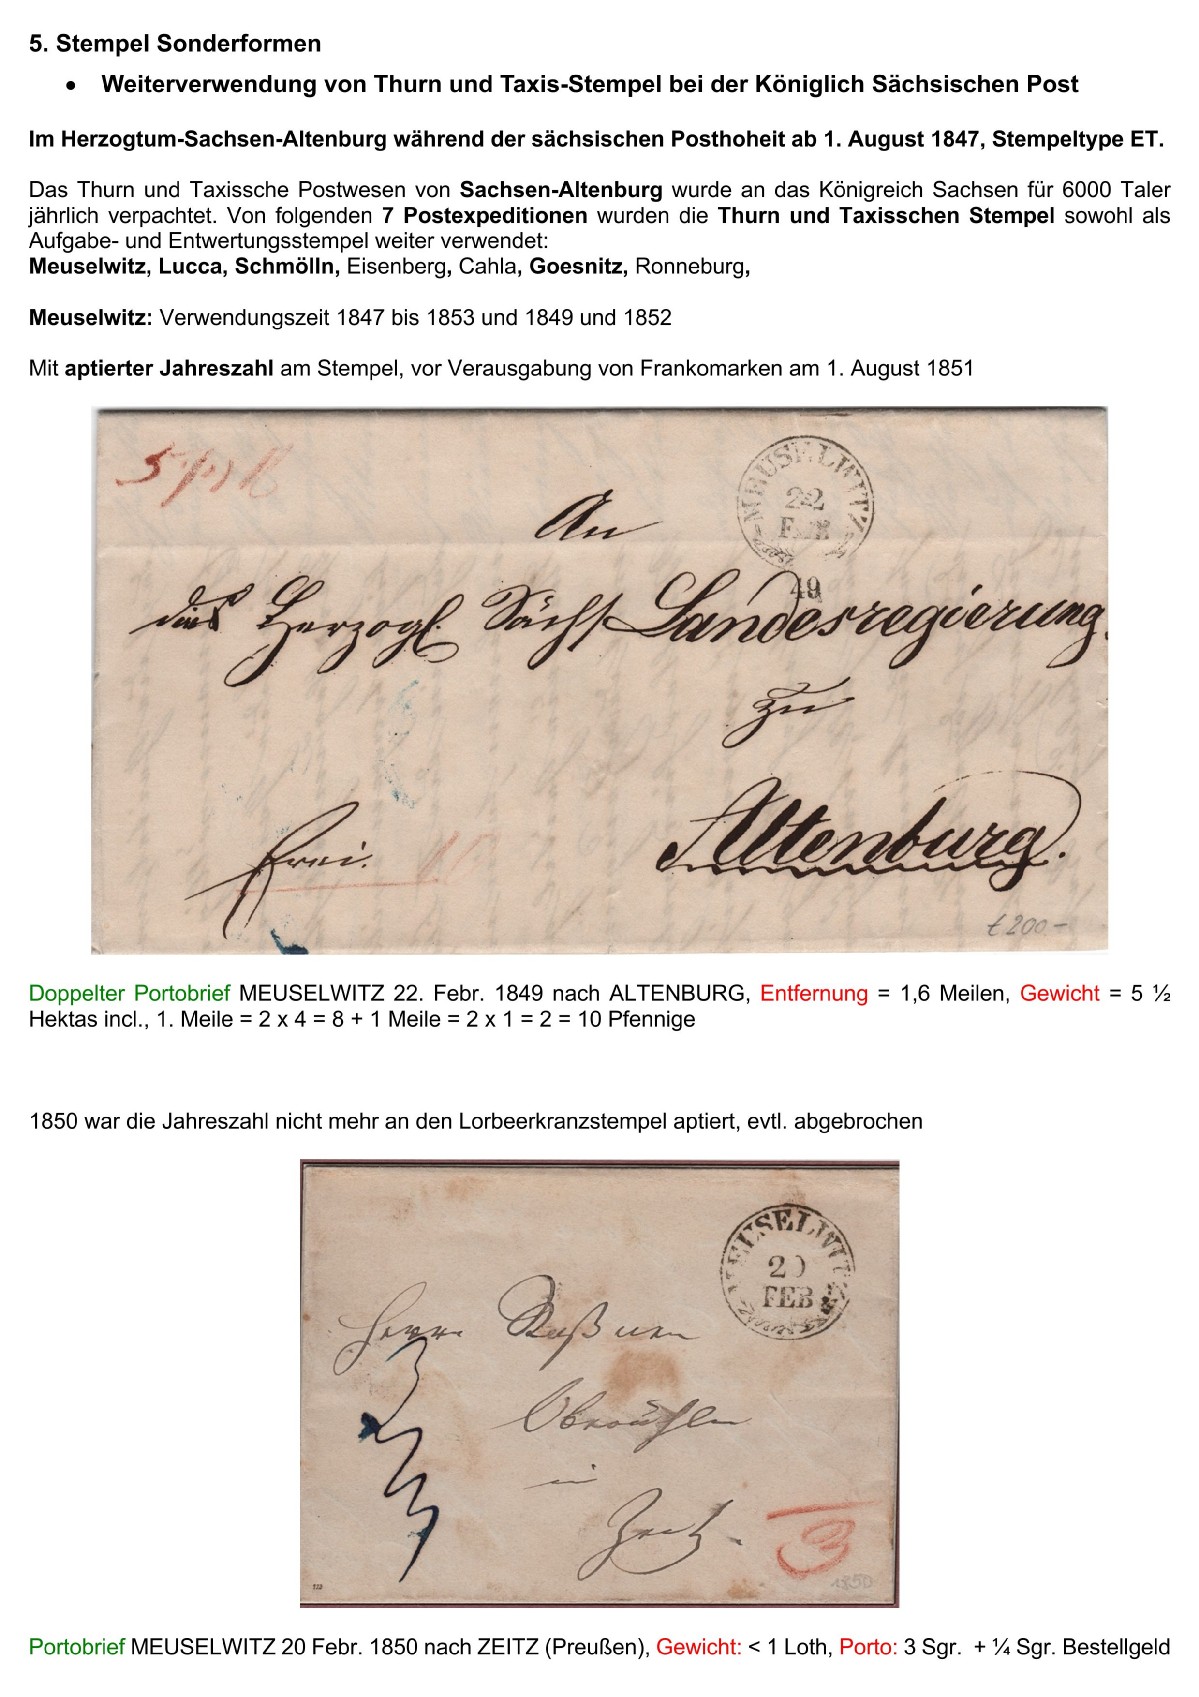 5. Stempel Sonderformen
• Weiterverwendung von Thurn und Taxis-Stempel bei der Königlich Sächsischen Post
Im Herzogtum-Sachsen-Altenburg während der sächsischen Posthoheit ab 1. August 1847, Stempeltype ET.
Das Thurn und Taxissche Postwesen von Sachsen-Altenburg wurde an das Königreich Sachsen für 6000 Taler
jährlich verpachtet. Von folgenden 7 Postexpeditionen wurden die Thurn und Taxisschen Stempel sowohl als
Aufgabe- und Entwertungsstempel weiter verwendet:
Meuselwitz, Lucca, Schmölln, Eisenberg, Cahla, Goesnitz, Ronneburg,
Meuselwitz: Verwendungszeit 1847 bis 1853 und 1849 und 1852
Mit aptierter Jahreszahl am Stempel, vor Verausgabung von Frankomarken am 1. August 1851
MEUSELWITZ
22
FEB
49
An
das Herzogl. Sächs Landesregierung
zu
Altenburg.
frei.
€200.-
Doppelter Portobrief MEUSELWITZ 22. Febr. 1849 nach ALTENBURG, Entfernung = 1,6 Meilen, Gewicht = 5 ½
Hektas incl., 1. Meile = 2 x 4 = 8 + 1 Meile = 2 x 1 = 2 = 10 Pfennige
1850 war die Jahreszahl nicht mehr an den Lorbeerkranzstempel aptiert, evtl. abgebrochen
MEUSELWITZ
20
FEB
Herrn
in
Zeitz.
3
1850
Portobrief MEUSELWITZ 20 Febr. 1850 nach ZEITZ (Preußen), Gewicht: < 1 Loth, Porto: 3 Sgr. + ¼ Sgr. Bestellgeld